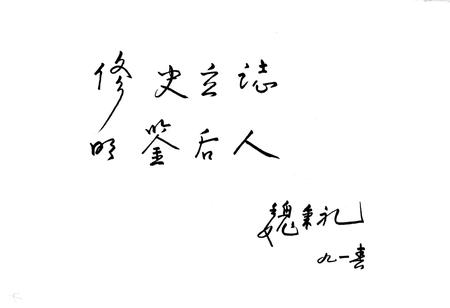 修史立誌
明鉴后人
魏秉礼
九一春